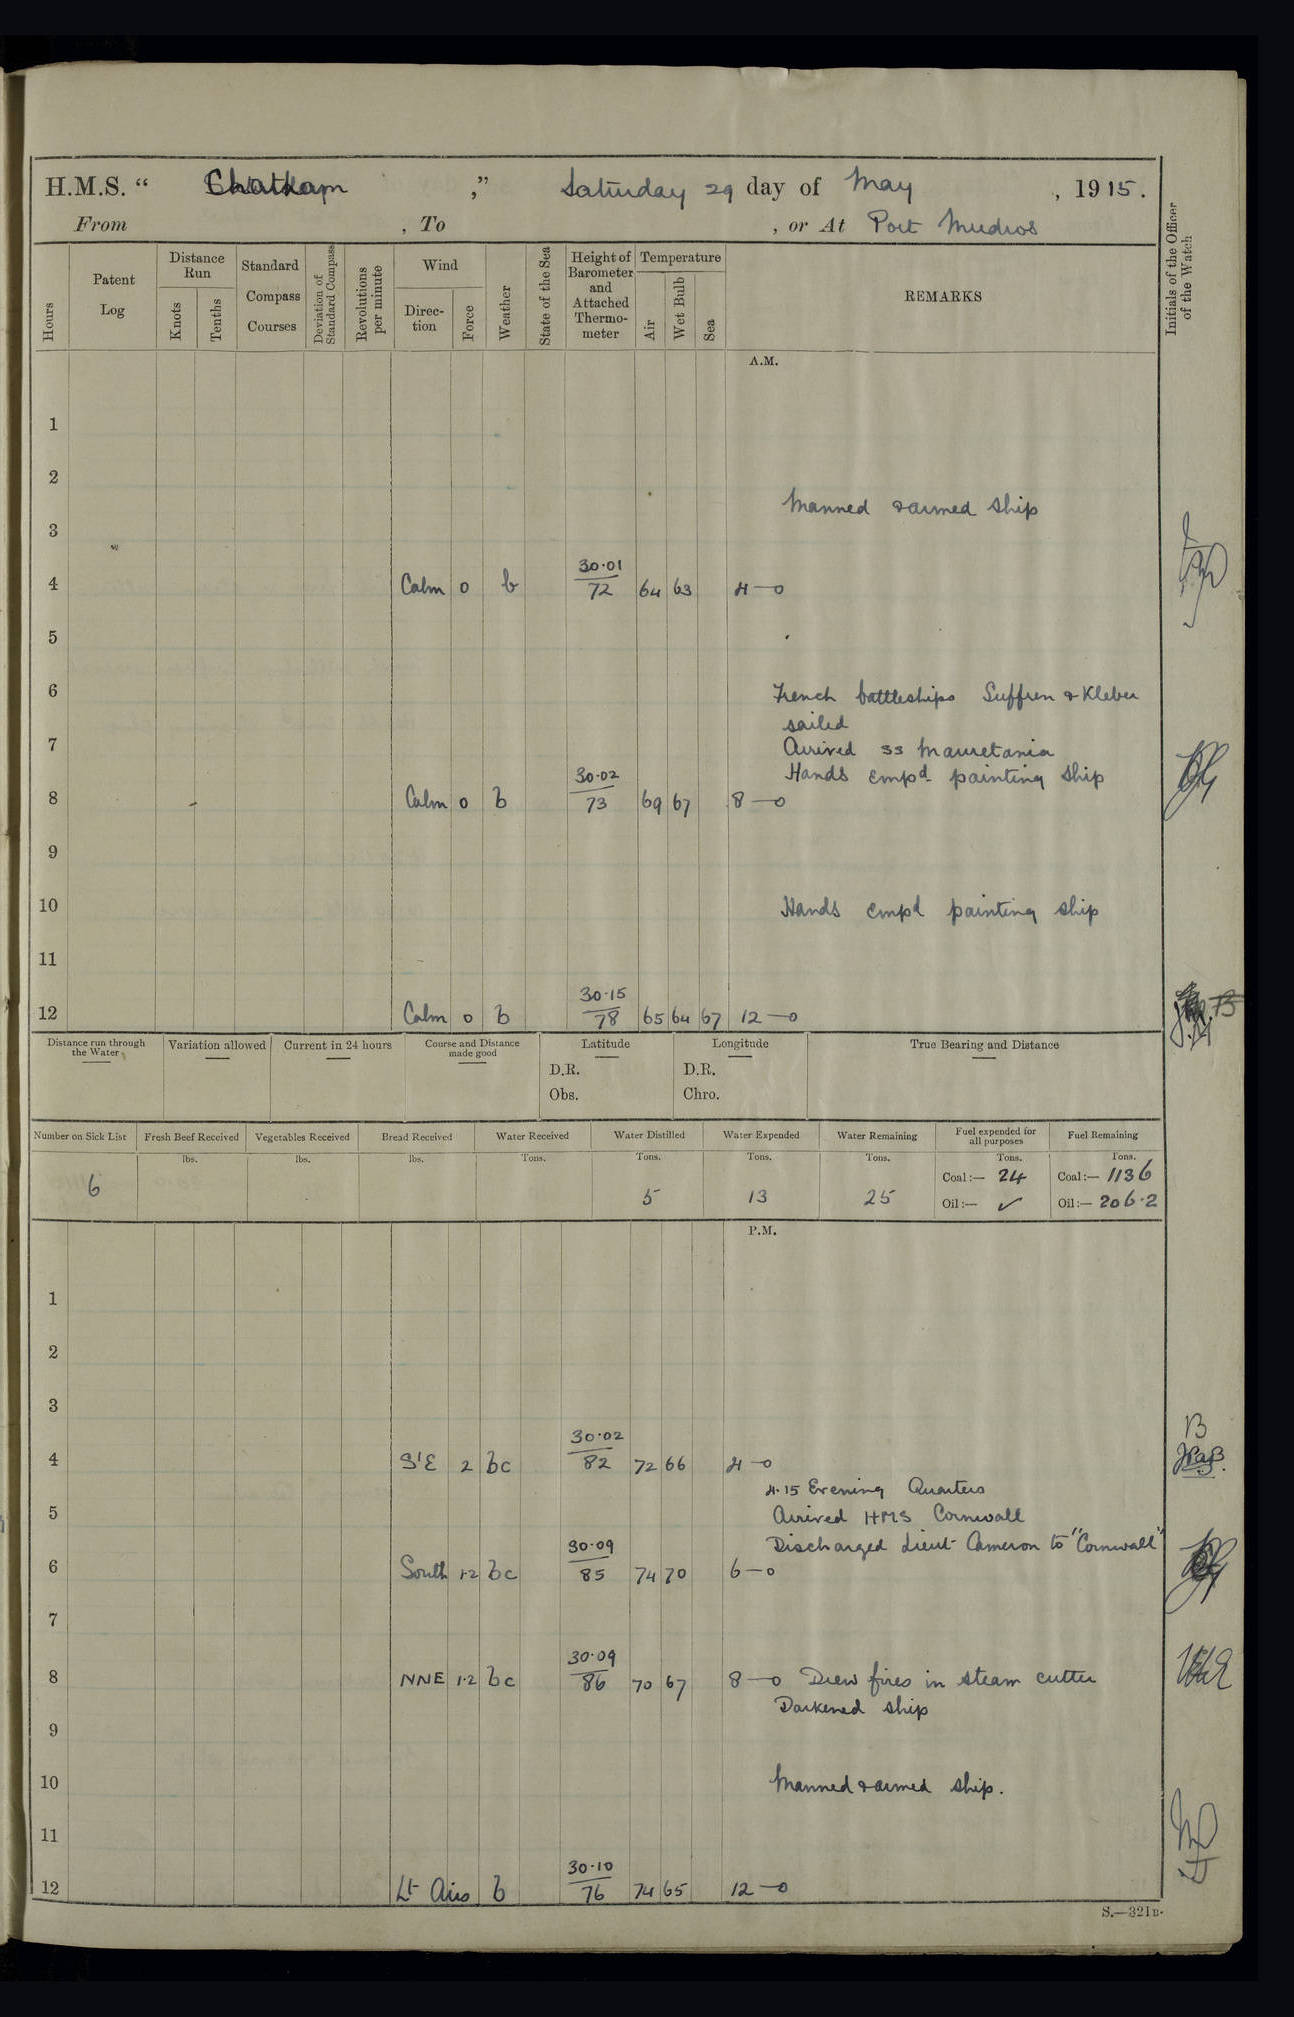 H.M.S. “ Chatham ,” Saturday 29 day of May , 1915.
From , To , or At Port Mudros
Hours
Patent Log
Distance Run
Knots
Tenths
Standard Compass Courses
Deviation of Standard Compass
Revolutions per minute
Wind
Direction
Force
Weather
State of the Sea
Height of Barometer and Attached Thermometer
Temperature
Air
Wet Bulb
Sea
REMARKS
Initials of the Officer of the Watch
A.M.
1
2
Manned & armed ship
3
30.01
4 Calm 0 b 72 64 63 4—0
5
6 French battleships Suffren & Kleber
sailed
7 Arrived SS Mauretania
30.02 Hands empd painting ship
8 Calm 0 b 73 69 67 8—0
9
10 Hands empd painting ship
11
30.15
12 Calm 0 b 78 65 64 67 12—0
Distance run through the Water
Variation allowed
Current in 24 hours
Course and Distance made good
Latitude
D.R.
Obs.
Longitude
D.R.
Chro.
True Bearing and Distance
Number on Sick List
6
Fresh Beef Received
lbs.
Vegetables Received
lbs.
Bread Received
lbs.
Water Received
Tons.
Water Distilled
Tons.
5
Water Expended
Tons.
13
Water Remaining
Tons.
25
Fuel expended for all purposes
Tons.
Coal:— 24
Oil:— ✓
Fuel Remaining
Tons.
Coal:— 1136
Oil:— 206.2
P.M.
1
2
3
30.02
4 S'E 2 bc 82 72 66 4—0
4.15 Evening Quarters
5 Arrived HMS Cornwall
30.09 Discharged Lieut Cameron to "Cornwall"
6 South 1.2 bc 85 74 70 6—0
7
30.09
8 NNE 1.2 bc 86 70 67 8—0 Drew fires in steam cutter
Darkened ship
9
10 Manned & armed ship.
11
30.10
12 Lt Airs b 76 74 65 12—0
S.—321B.